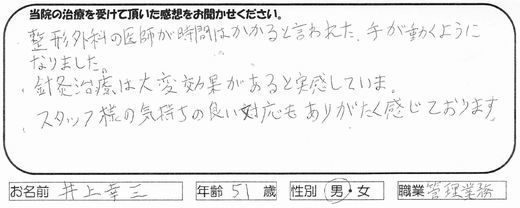 当院の治療を受けて頂いた感想をお聞かせください。
整形外科の医師が時間はかかると言われた、手が動くように
なりました。
針灸治療は大変効果があると実感していま。
スタッフ様の気持ちの良い対応もありがたく感じております
お名前 井上幸三 年齢 51 歳 性別 男・女 職業 管理業務